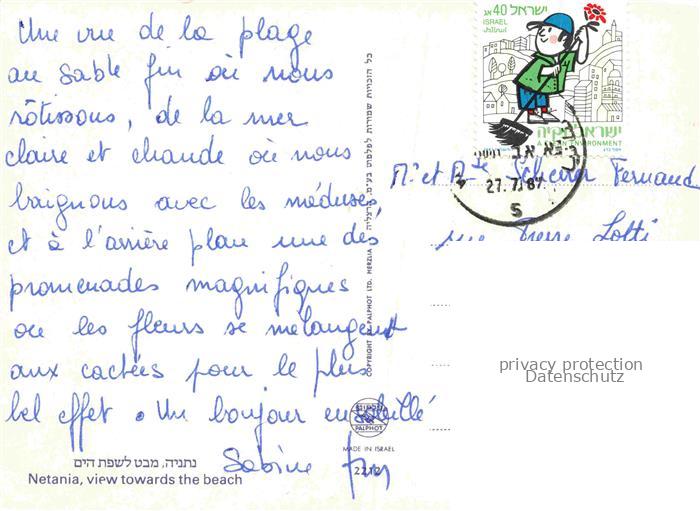 Une vue de la plage
au sable fin où nous
rôtissons, de la mer
claire et chaude où nous
baignons avec les méduses,
et à l'arrière plan une des
promenades magnifiques
où les fleurs se mélangent
aux cactées pour le plus
bel effet. Un bonjour ensoleillé
Sabine
נתניה, מבט לשפת הים
Netania, view towards the beach
כל הזכויות שמורות לפלפוט בע"מ הרצליה
COPYRIGHT BY PALPHOT LTD. HERZLIA
PALPHOT
MADE IN ISRAEL
2212
ישראל 40 אג
ISRAEL
ישראל נקיה
ENVIRONMENT
27.7.87
5
Mr et Mme Scherrer Fernand
rue Pierre Lotti
privacy protection
Datenschutz